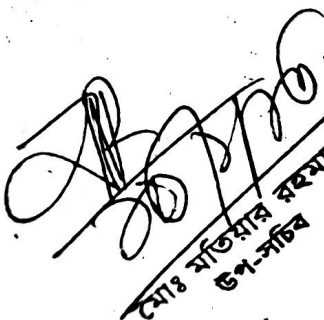 মোঃ মতিয়ার রহমা
উপ-সচিব